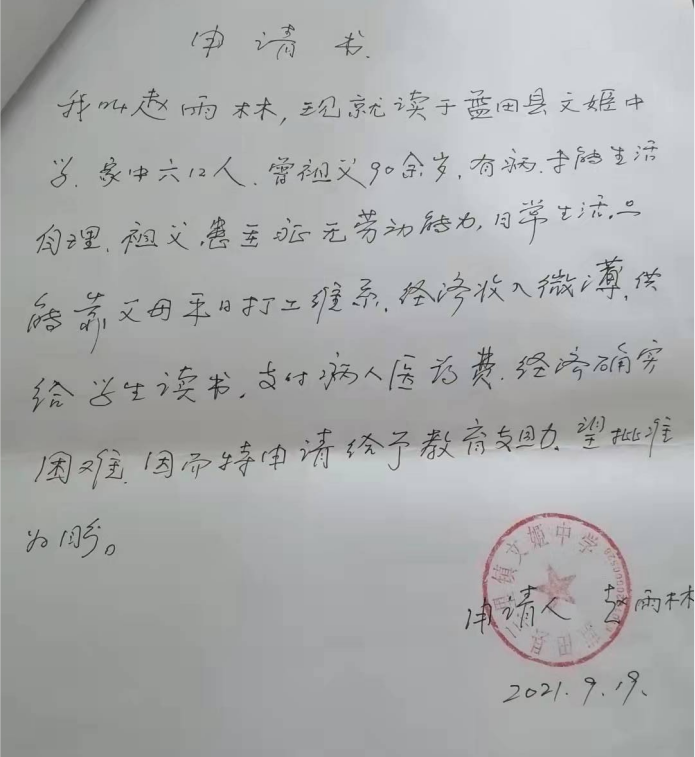 申请书
我叫赵雨林,现就读于蓝田县文姬中
学.家中六口人.曾祖父90余岁,有病.未能生活
自理.祖父患重症无劳动能力,日常生活只
能靠父母平日打工维系.经济收入微薄,供
给学生读书,支付病人医药费.经济确实
困难.因而特申请给予教育支助.望批准
为盼。
三里镇文姬中学
蓝田县
申请人 赵雨林
2021.9.19.